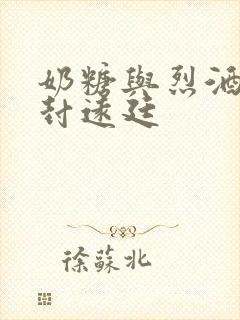 奶糖與烈酒
封遠廷
徐蘇北